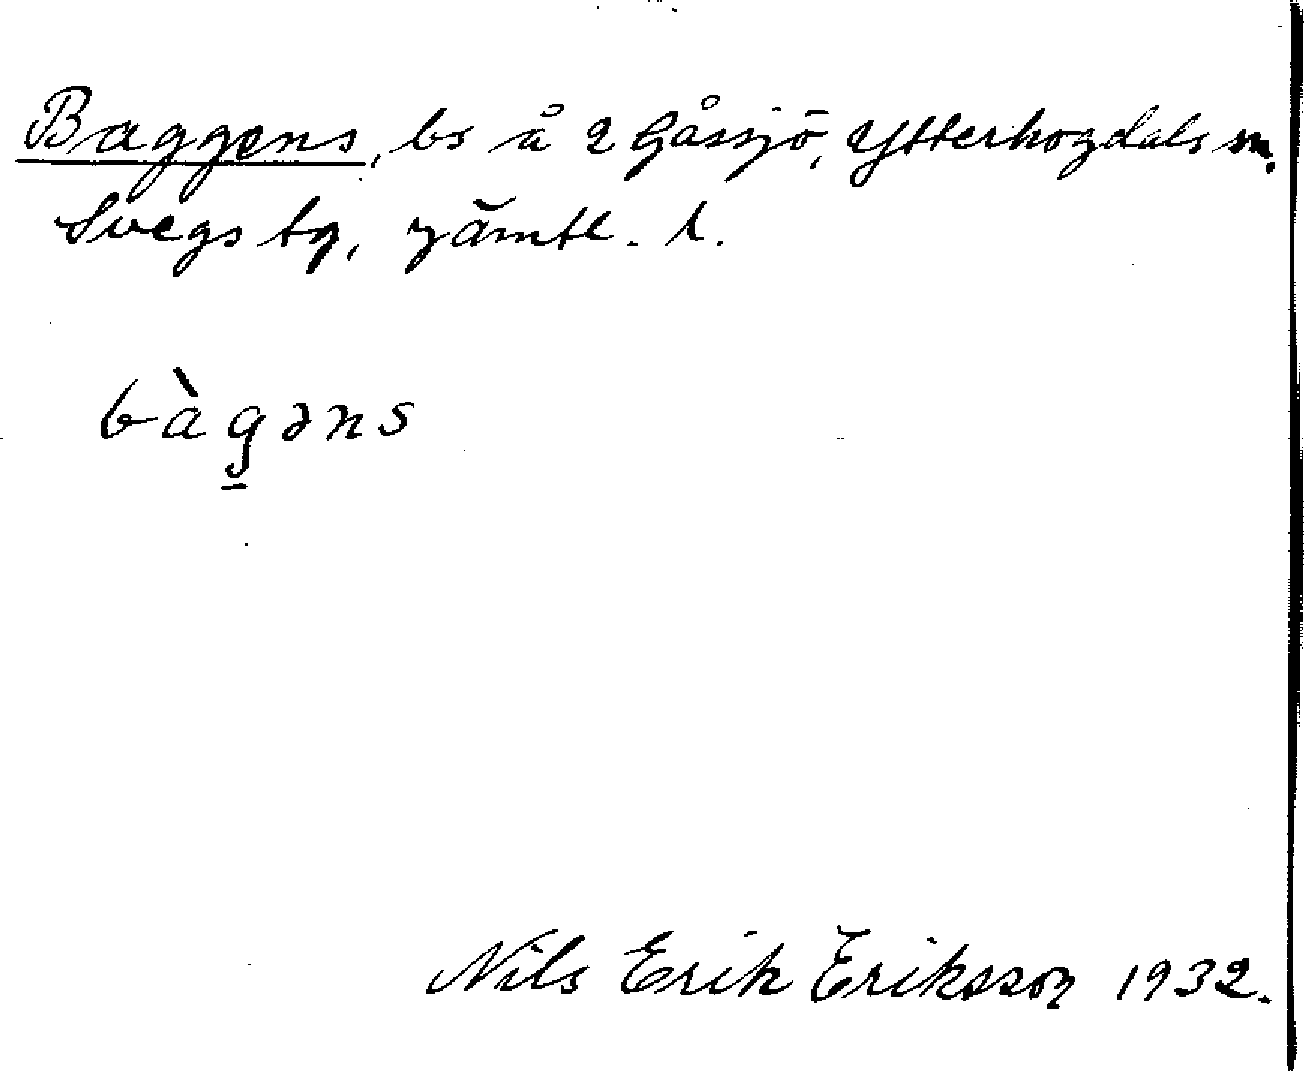 Baggens, bs å 2 Gåssjö, Ytterhogdals sn.
Svegs tg, Jämtl. l.
bàg̱əns
Nils Erik Eriksson 1932.